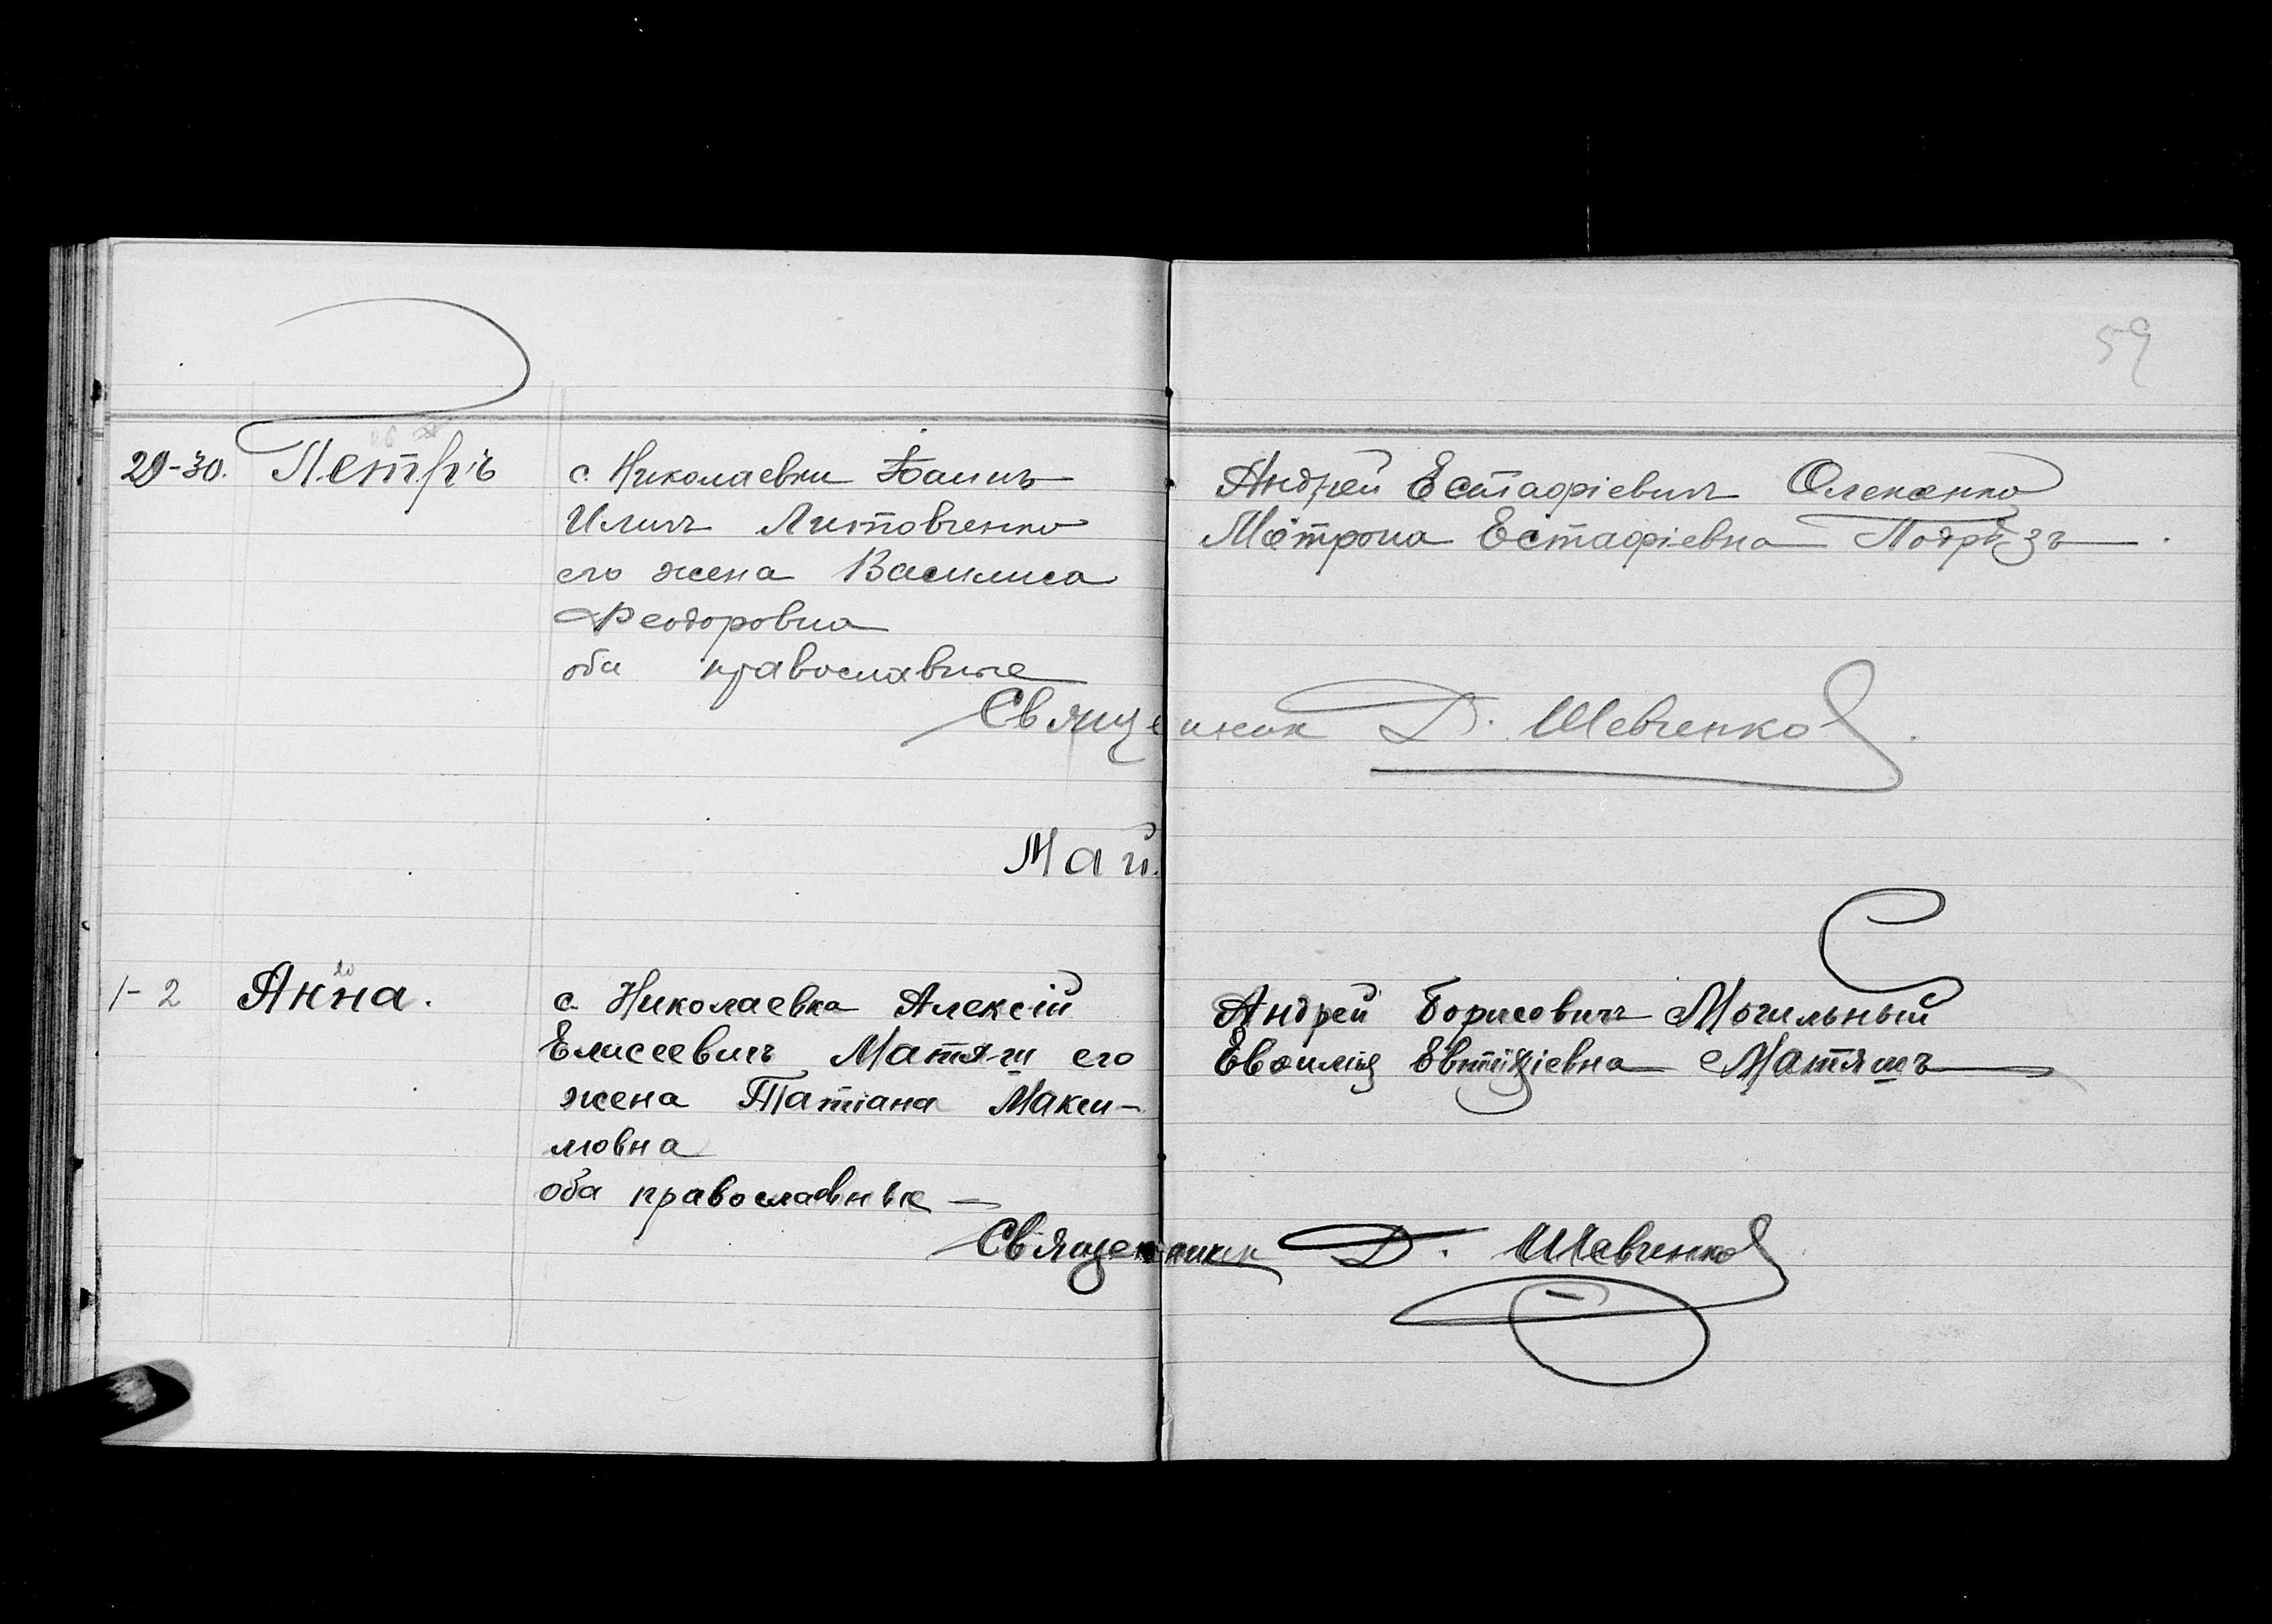 59
29-30. Петръ
с. Николаевки Іоаннъ
Илличъ Литовченко
его жена Василиса
Феодоровна
оба православные
Андрей Естафіевичъ Олексенко
Мотрона Естафіевна Подрѣзъ
Священник Д. Шевченко
Май.
1-2 Анна.
с. Николаевка Алексій
Елисеевичъ Матяш его
жена Татіана Макси-
мовна
оба православные
Андрей Борисовичъ Могильный
Евфимія Евтихіевна Матяшъ
Священник Д. Шевченко